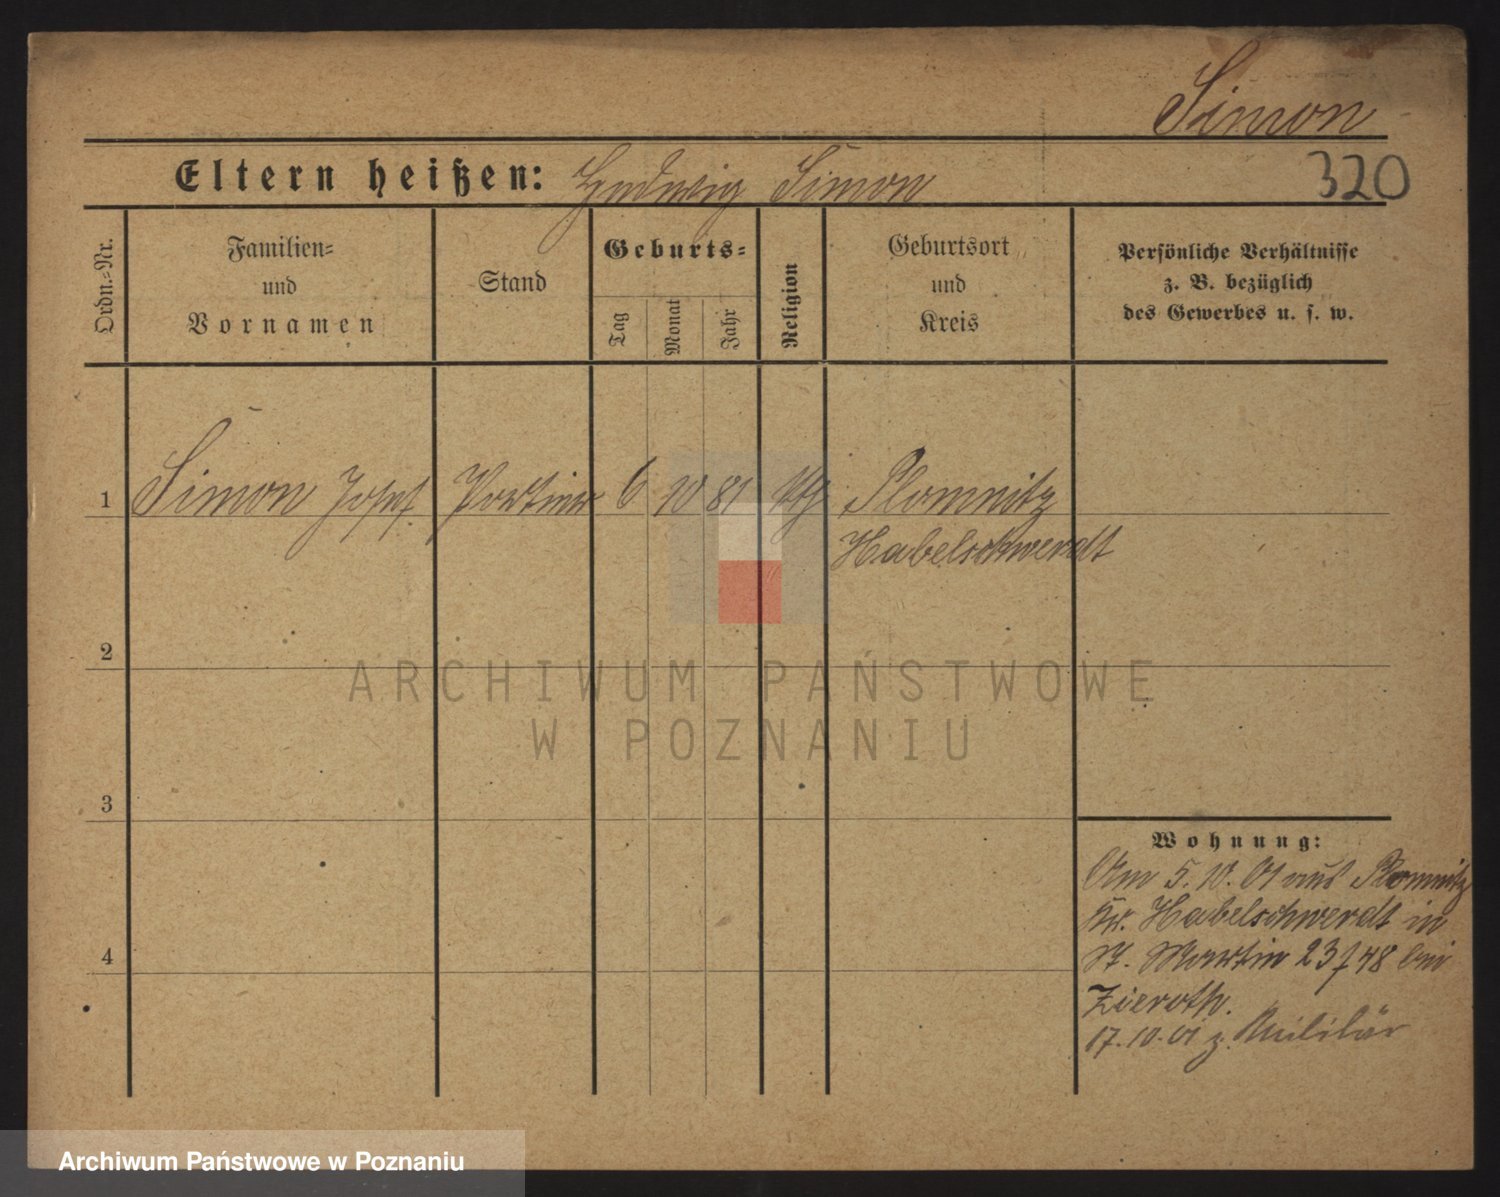 Simon
Eltern heißen: Hedwig Simon
320
Ordn.=Nr.
Familien=
und
Vornamen
Stand
Geburts=
Tag
Monat
Jahr
Religion
Geburtsort
und
Kreis
Persönliche Verhältnisse
z. B. bezüglich
des Gewerbes u. s. w.
1 Simon Josef Portier 6 10 81 kth Plomnitz
Habelschwerdt
2
3
4
Wohnung:
Am 5. 10. 01 aus Plomnitz
Kr. Habelschwerdt in
St. Martin 23/48 bei
Zieroth.
17. 10. 01 z. Militär
ARCHIWUM PAŃSTWOWE
W POZNANIU
Archiwum Państwowe w Poznaniu